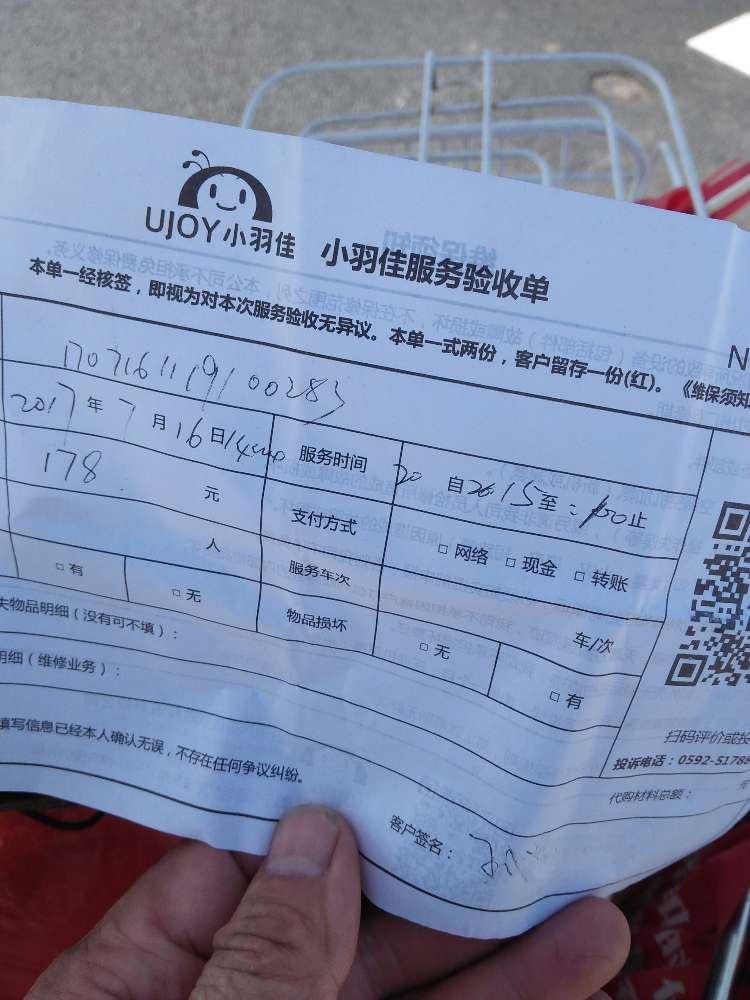 UJOY小羽佳 小羽佳服务验收单
本单一经核签，即视为对本次服务验收无异议。本单一式两份，客户留存一份(红)。《维保须知
N
1707161119100283
2017年7月16日 服务时间 自 至： 止
178 元 支付方式 □网络 □现金 □转账
人 服务车次 车/次
□有 □无 物品损坏 □无 □有
失物品明细（没有可不填）：
明细（维修业务）：
填写信息已经本人确认无误，不存在任何争议纠纷。
扫码评价或投
投诉电话：0592-51788
代购材料总额： 元
客户签名：